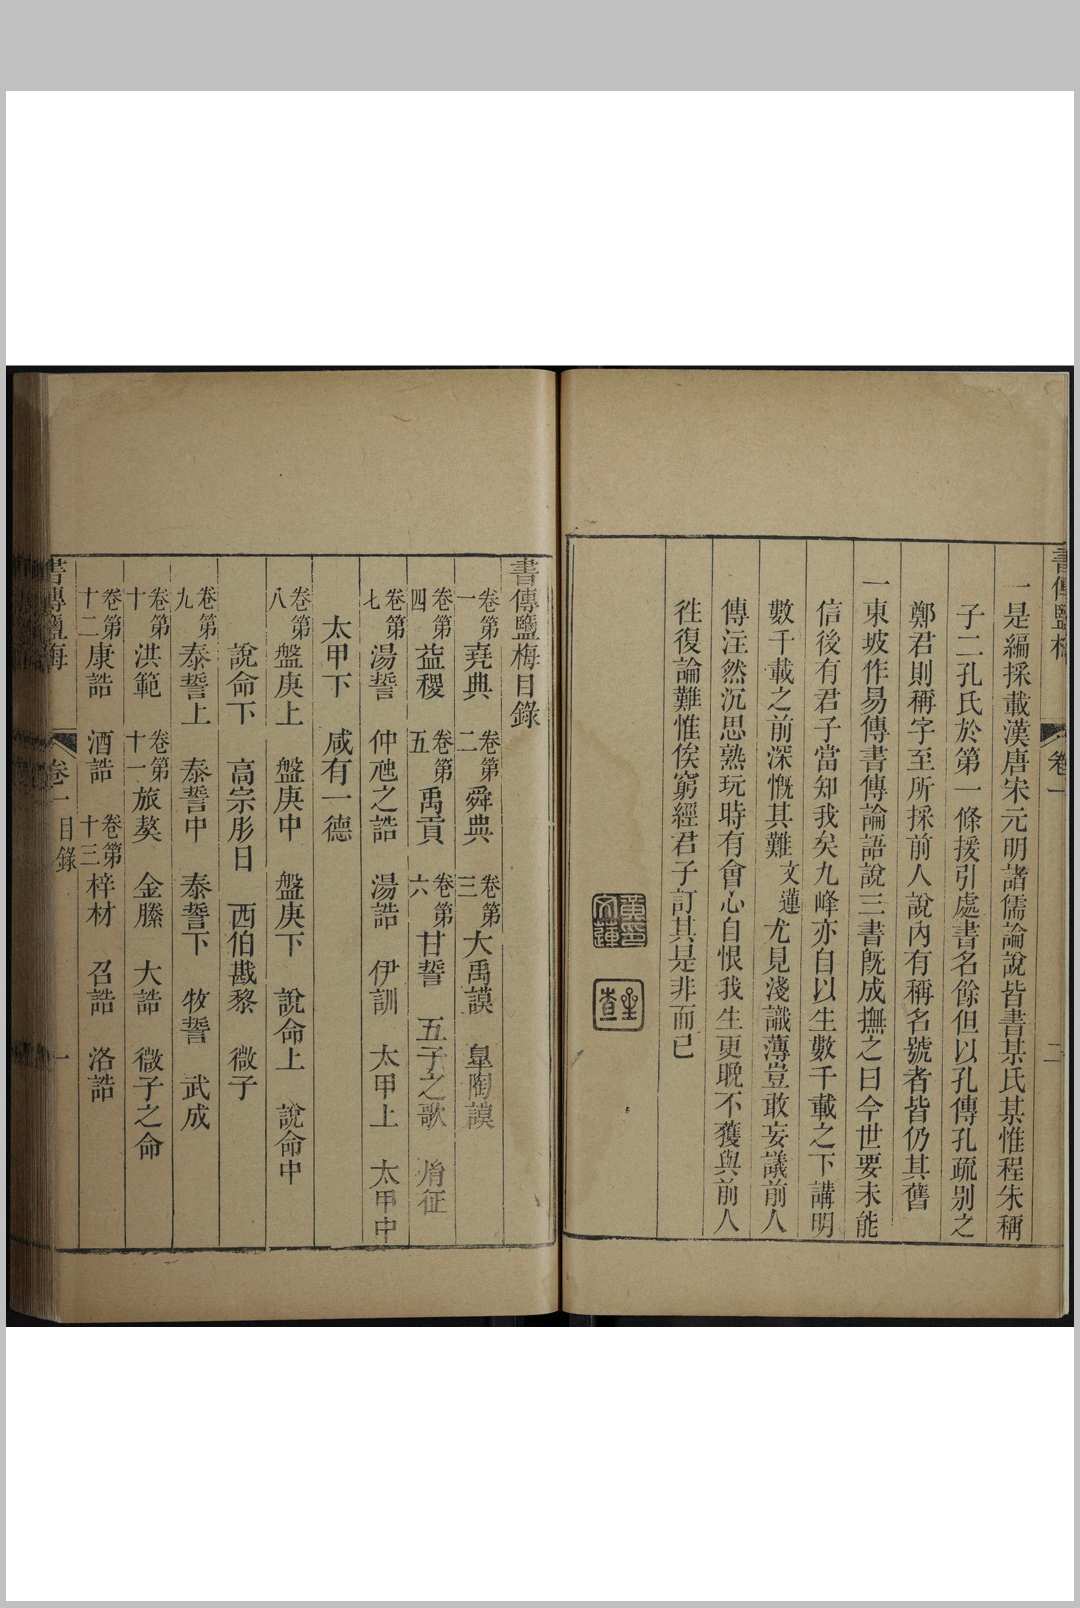 書傳鹽梅
卷一
二
一是編採載漢唐宋元明諸儒論說皆書某氏某惟程朱稱
子二孔氏於第一條援引處書名餘但以孔傳孔疏别之
鄭君則稱字至所採前人說內有稱名號者皆仍其舊
一東坡作易傳書傳論語說三書旣成撫之曰今世要未能
信後有君子當知我矣九峰亦自以生數千載之下講明
數千載之前深慨其難文蓮尤見淺識薄豈敢妄議前人
傳注然沉思熟玩時有會心自恨我生更晚不獲與前人
徃復論難惟俟窮經君子訂其是非而已
書傳鹽梅目錄
卷第一 堯典 卷第二 舜典 卷第三 大禹謨 臯陶謨
卷第四 益稷 卷第五 禹貢 卷第六 甘誓 五子之歌 胤征
卷第七 湯誓 仲虺之誥 湯誥 伊訓 太甲上 太甲中
太甲下 咸有一德
卷第八 盤庚上 盤庚中 盤庚下 說命上 說命中
說命下 高宗肜日 西伯戡黎 微子
卷第九 泰誓上 泰誓中 泰誓下 牧誓 武成
卷第十 洪範 卷第十一 旅獒 金縢 大誥 微子之命
卷第十二 康誥 酒誥 卷第十三 梓材 召誥 洛誥
書傳鹽梅
卷一目錄
一